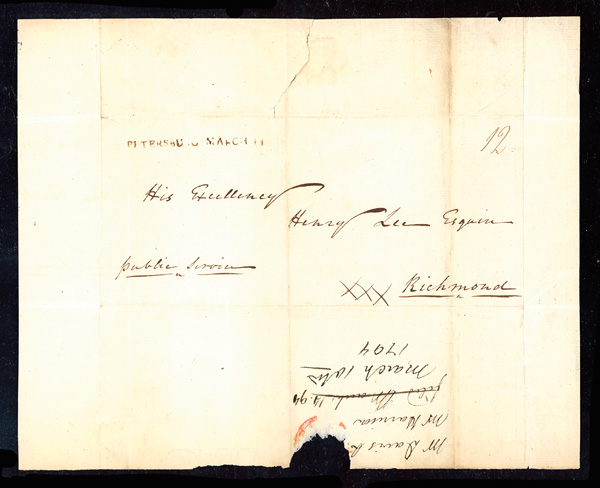 PETERSBURG MARCH 11
12
His Excellency
Henry Lee Esquire
public Service
XXX Richmond
Mr Davis &
Mr
March 10th
1794